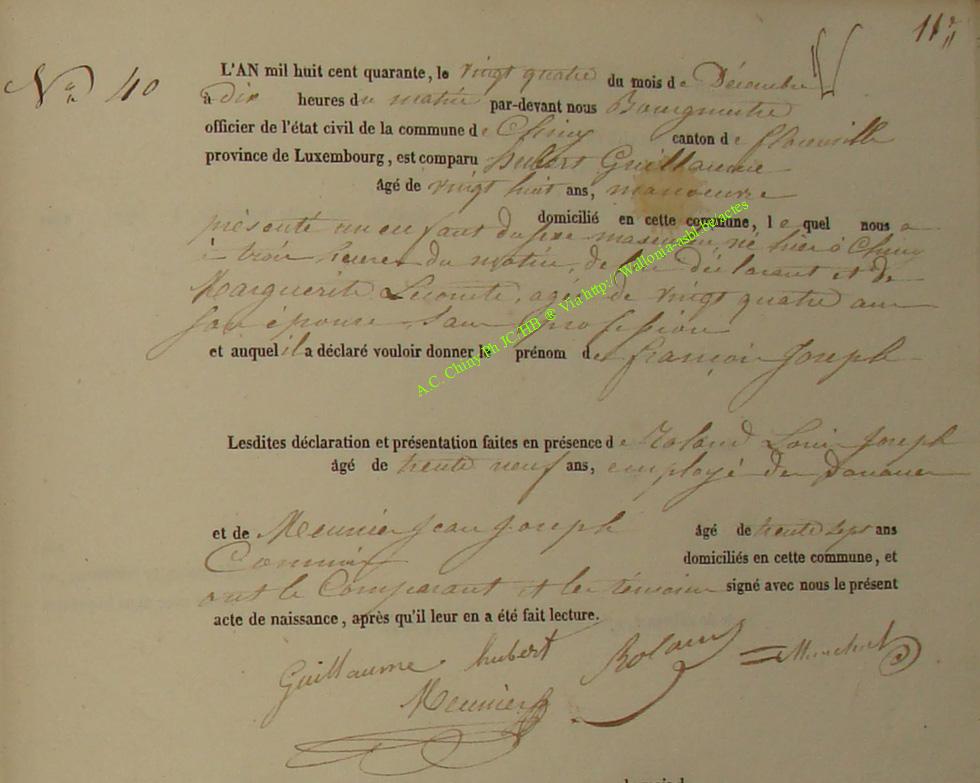 11
N° 40
L'AN mil huit cent quarante, le vingt quatre du mois de Décembre
à dix heures du matin par-devant nous Bourgmestre
officier de l'état civil de la commune de Chiny canton de florenville
province de Luxembourg, est comparu hubert Guillaume
âgé de vingt huit ans, manoeuvre
domicilié en cette commune, le quel nous a
présenté un enfant du sexe masculin, né hier à Chiny
à trois heures du matin, de lui déclarant et de
Marguerite Lecomte, agée de vingt quatre ans
son épouse, sans profession
et auquel il a déclaré vouloir donner le prénom de françois Joseph
A.C. Chiny Ph JC.HB ® Via http://Wallonia-asbl.be/actes
Lesdites déclaration et présentation faites en présence de Roland Louis Joseph
âgé de trente neuf ans, employé des Douanes
et de Meunier Jean Joseph âgé de trente sept ans
Commis domiciliés en cette commune, et
ont le Comparant et les témoins signé avec nous le présent
acte de naissance, après qu'il leur en a été fait lecture.
Guillaume hubert Roland
Meunier